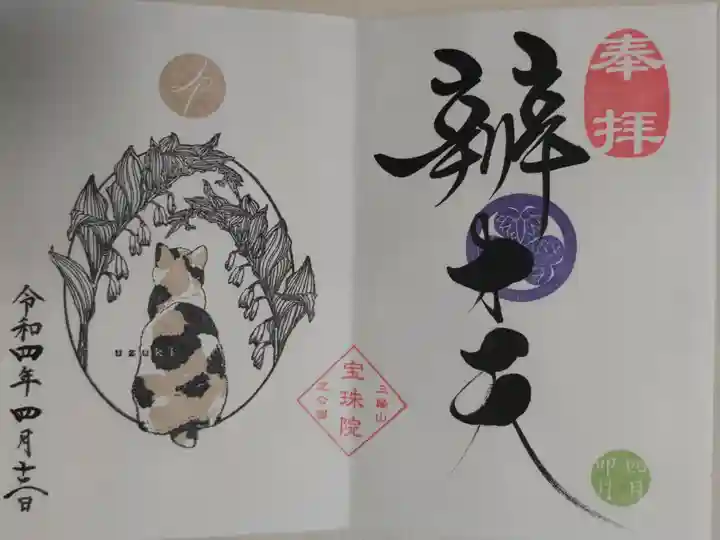 奉拝
辨才天
四月
卯月
三縁山
宝珠院
芝公園
uzuki
令和四年四月十三日